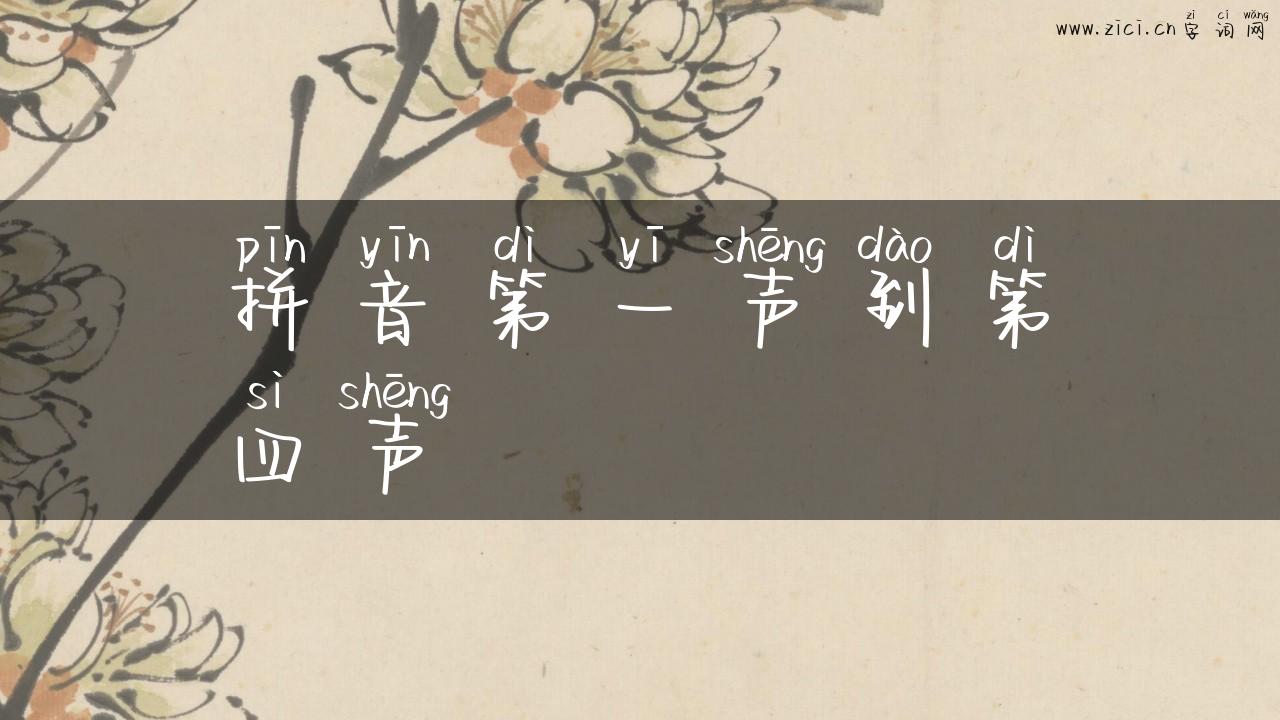 zì cí wǎng
www.zici.cn 字 词 网
pīn yīn dì yī shēng dào dì
拼 音 第 一 声 到 第
sì shēng
四 声